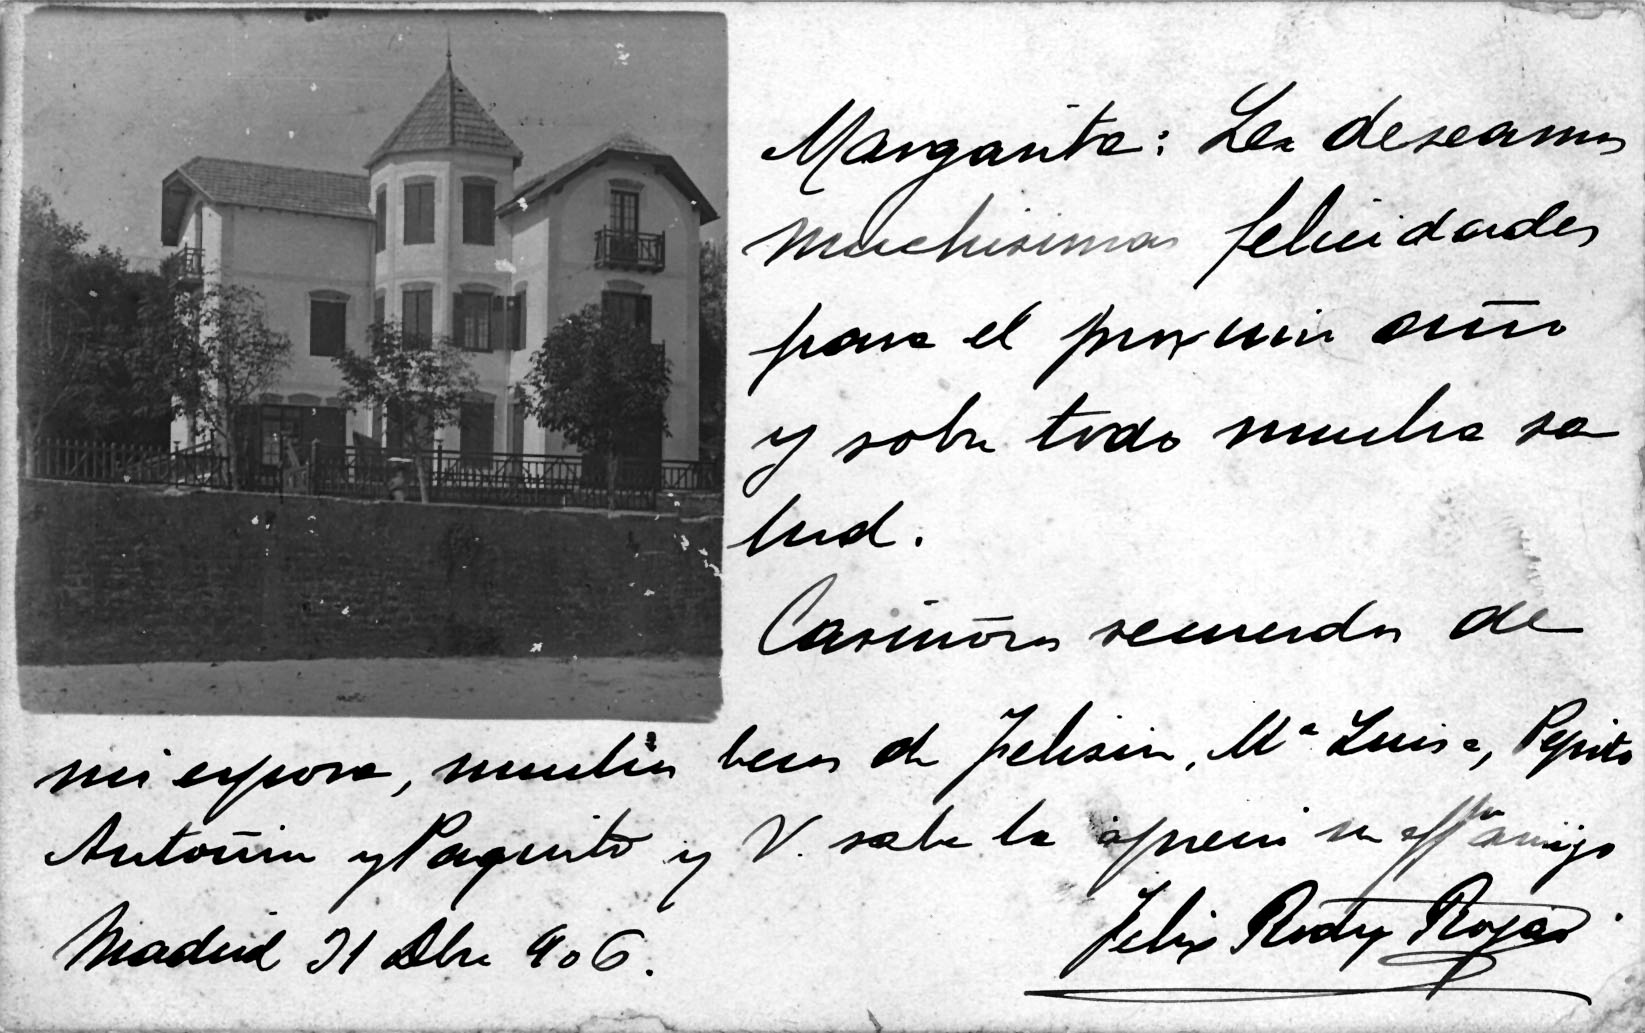 Margarita: Les deseamos
muchisimas felicidades
para el proximo año
y sobre todo mucha sa
lud.
Cariñosos recuerdos de
mi esposa, muchos besos de Felisin, Mª Luisa, Pepito
Antoñin y Paquito y V. sabe la aprecia su affmo amigo
Felix Rodz Rojas
Madrid 31 Dbre 906.